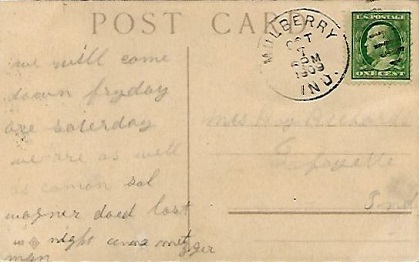 POST CARD
MULBERRY
OCT
7
PM
1909
IND.
U.S. POSTAGE
ONE CENT
we will come
down fryday
are saterday
we are as well
as comon sol
wagner daed last
night
man
Mrs Roy
Lafayette
Ind